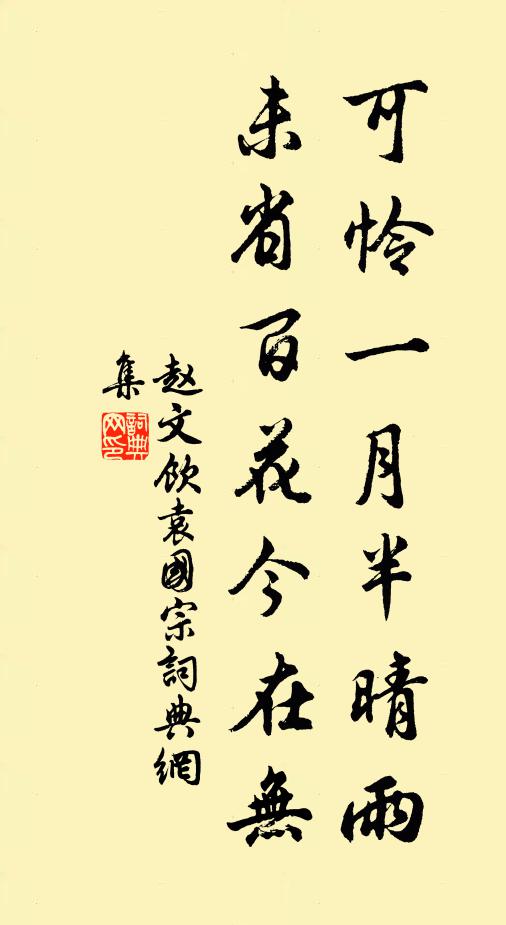 可怜一月半晴雨
未省百花今在無
赵文欽袁國宗詞典網
集
詞典
网印